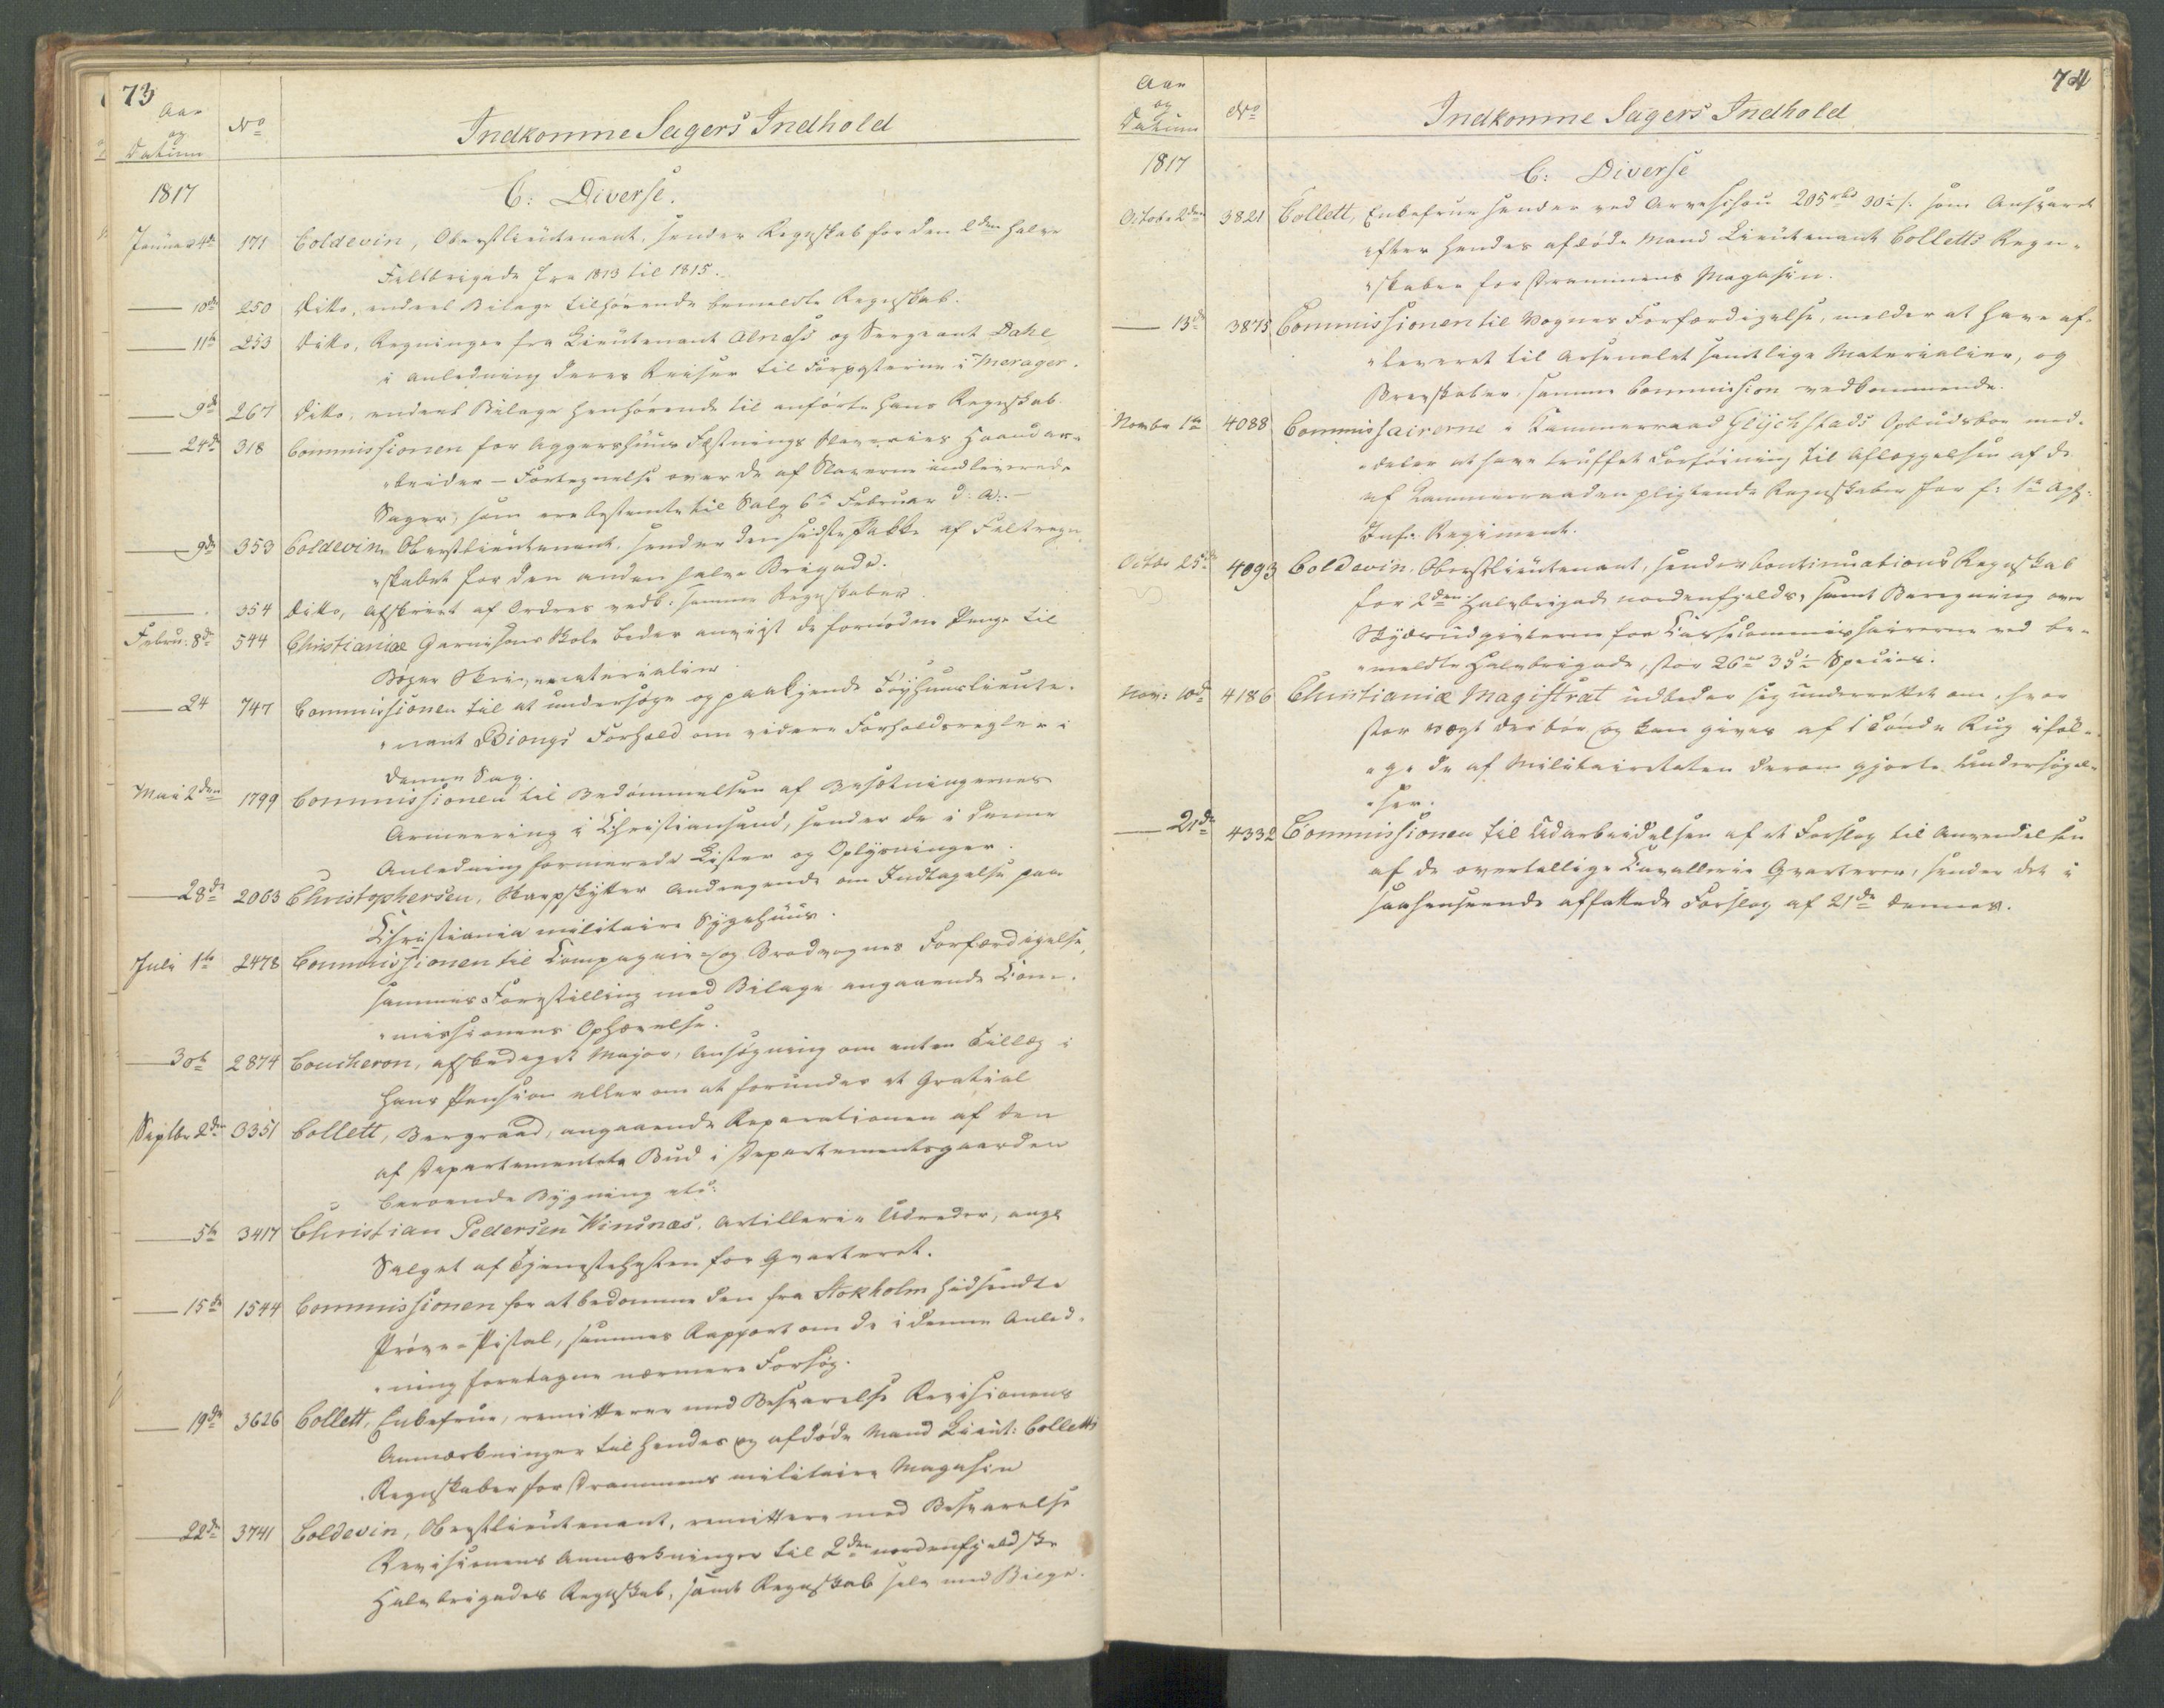 73
Aar
og
Datum
No
Indkomne Sagers Indhold
1817
C: Diverse.
Januar 4de 171 Coldevin, Oberstlieutenant, sender Regnskab for den 2den halve
Feltbrigade fra 1813 til 1815.
— 10de 250 Ditto, endeel Bilage tilhørende bemeldte Regnskab.
— 11te 253 Ditto, Regninger fra Lieutenant Alnæss og Sergeant Dahl
i Anledning deres Reiser til Forposterne i Merager.
— 9de 267 Ditto, endeel Bilage henhørende til anførte hans Regnskab.
— 24de 318 Commissionen for Aggershuus Fæstnings Slaveries Haandar-
beider – Fortegnelse over de af Slaverne indleverede
Sager, som ere bestemte til Salg 6te Februar d: A: –
— 9de 353 Coldevin Oberstlieutenant, sender den sidste Pakke af Feltregn-
skabet for den anden halve Brigade.
— 354 Ditto, Afskrivt af Ordres vedk: samme Regnskaber.
Febru: 8de 544 Christianiæ Garnisons Skole beder anviist de fornødne Penge til
Bøger Skrivematerialier.
— 24 747 Commissionen til at undersøge og paakjende Tøyhuuslieute-
nant Biongs Forhold om videre Forholdsregler i
denne Sag.
Mai 2den 1799 Commissionen til Bedømmelsen af Besætningernes
Armeering i Christiansand, sender de i denne
Anledning formerede Lister og Oplysninger.
— 28de 2063 Christophersen, Skarpskytter Andragende om Indtagelse paa
Christiania militaire Sygehuus.
Juli 1te 2478 Commissionen til Compagnie- og Brødvognes Forfærdigelse,
sammes Forestilling med Bilage angaaende Com-
missionens Ophævelse.
— 30te 2874 Coucheron, afskediget Major, Ansøgning om enten Tillæg i
hans Pension eller om at forundes et Gratial
Septbr 2den 3351 Collett, Bergraad, angaaende Reparationen af den
af Departementets Bud i Departementsgaarden
beboende Bygning etc:
— 5te 3417 Christian Pedersen Winsnæs, Artillerie Udreder, angl
Salget af Tjenestehesten for Qvarteret.
— 15de 1544 Commissionen for at bedømme den fra Stokholm hidsendte
Prøve-Pistol, sammes Rapport om de i denne Anled-
ning foretagne nærmere Forsøg.
— 19de 3626 Collett, Enkefrue, remitterer med Besvarelse Revisionens
Anmærkninger til hendes afdøde Mand Lieut: Colletts
Regnskaber for Drammens militaire Magasin
— 22de 3741 Coldevin, Oberstlieutenant, remittere med Besvarelse
Revisionens Anmærkninger til 2den nordenfjeldske
Halvbrigades Regnskab, samt Regnskab selv med Bilage.
74
Aar
og
Datum
No
Indkomne Sagers Indhold
1817
C: Diverse
Octobr 2den 3821 Collett, Enkefrue sender ved Arvesihou 205 rbd 30 s. som Ansvaret
efter hendes afdøde Mand Lieutenant Colletts Regn-
skaber for Drammens Magasin.
— 13de 3875 Commissionen til Vognes Forfærdigelse, melder at have af-
leveret til Arsenalet samtlige Materialier, og
Brevskaber samme Commission vedkommende.
Novbr 1te 4088 Commissairerne i Kammerraad Glychstads Opbudsboe med-
deler at have truffet Forføining til Aflæggelsen af de
af Kammerraaden pligtende Regnskaber for f: 1te Agh:
Inf: Regiment.
Octbr 25de 4093 Coldevin, Oberstlieutenant, sender Continuations Regnskab
for 2den Halvbrigade nordenfjelds, samt Beregning over
Skydsudgivterne for Kassecommissairerne ved be-
meldte Halvbrigade, stor 26 35 Species.
Nov: 10de 4186 Christianiæ Magistrat udbeder sig underrettet om, hvor
stor Vægt der bør og kan gives af 1 Tønde Rug iføl-
ge de af Militairetaten derom gjorte Undersøgel-
ser.
— 21de 4332 Commissionen til Udarbeidelsen af et Forslag til Anvendelsen
af de overtallige Cavallerie Qvarterer, sender det i
saahenseende affattede Forslag af 21de dennes.